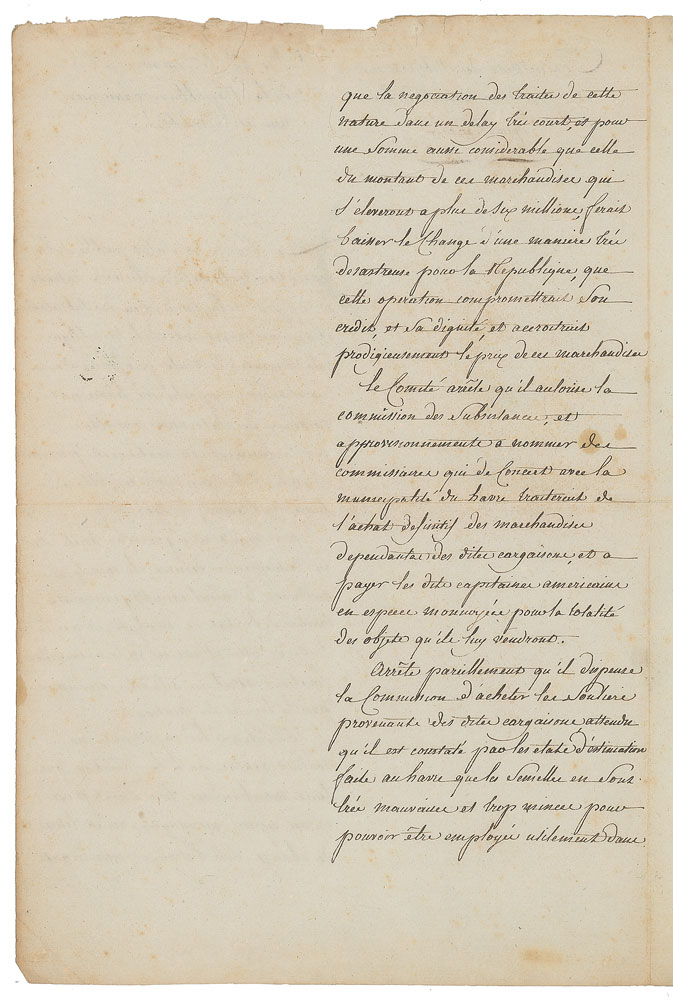 que la negociation des traites de cette
nature dans un delay très court, et pour
une somme aussi considerable que celle
du montant de ces marchandises qui
s'éleveront a plus de six millions, ferait
baisser le Change d'une manière très
desastreuse pour la Republique, que
cette operation compromettrait son
credit, et sa dignité et accroitrait
prodigieusement le prix de ces marchandises
le Comité arrête qu'il autorise la
commission des Subsistances, et
approvisionnements a nommer des
commissaires qui de Concert avec la
municipalité du havre traiteront de
l'achat definitif des marchandises
dependantes des dites cargaisons, et a
payer les dits capitaines americains
en especes monnoyées pour la totalité
des objets qu'ils luy vendront.
Arrête pareillement qu'il dispense
la Commission d'acheter les souliers
provenants des dites cargaisons, attendu
qu'il est constaté par les etats d'estimation
faits au havre que les semelles en sont
très mauvaises et trop minces pour
pouvoir être employés utilement dans